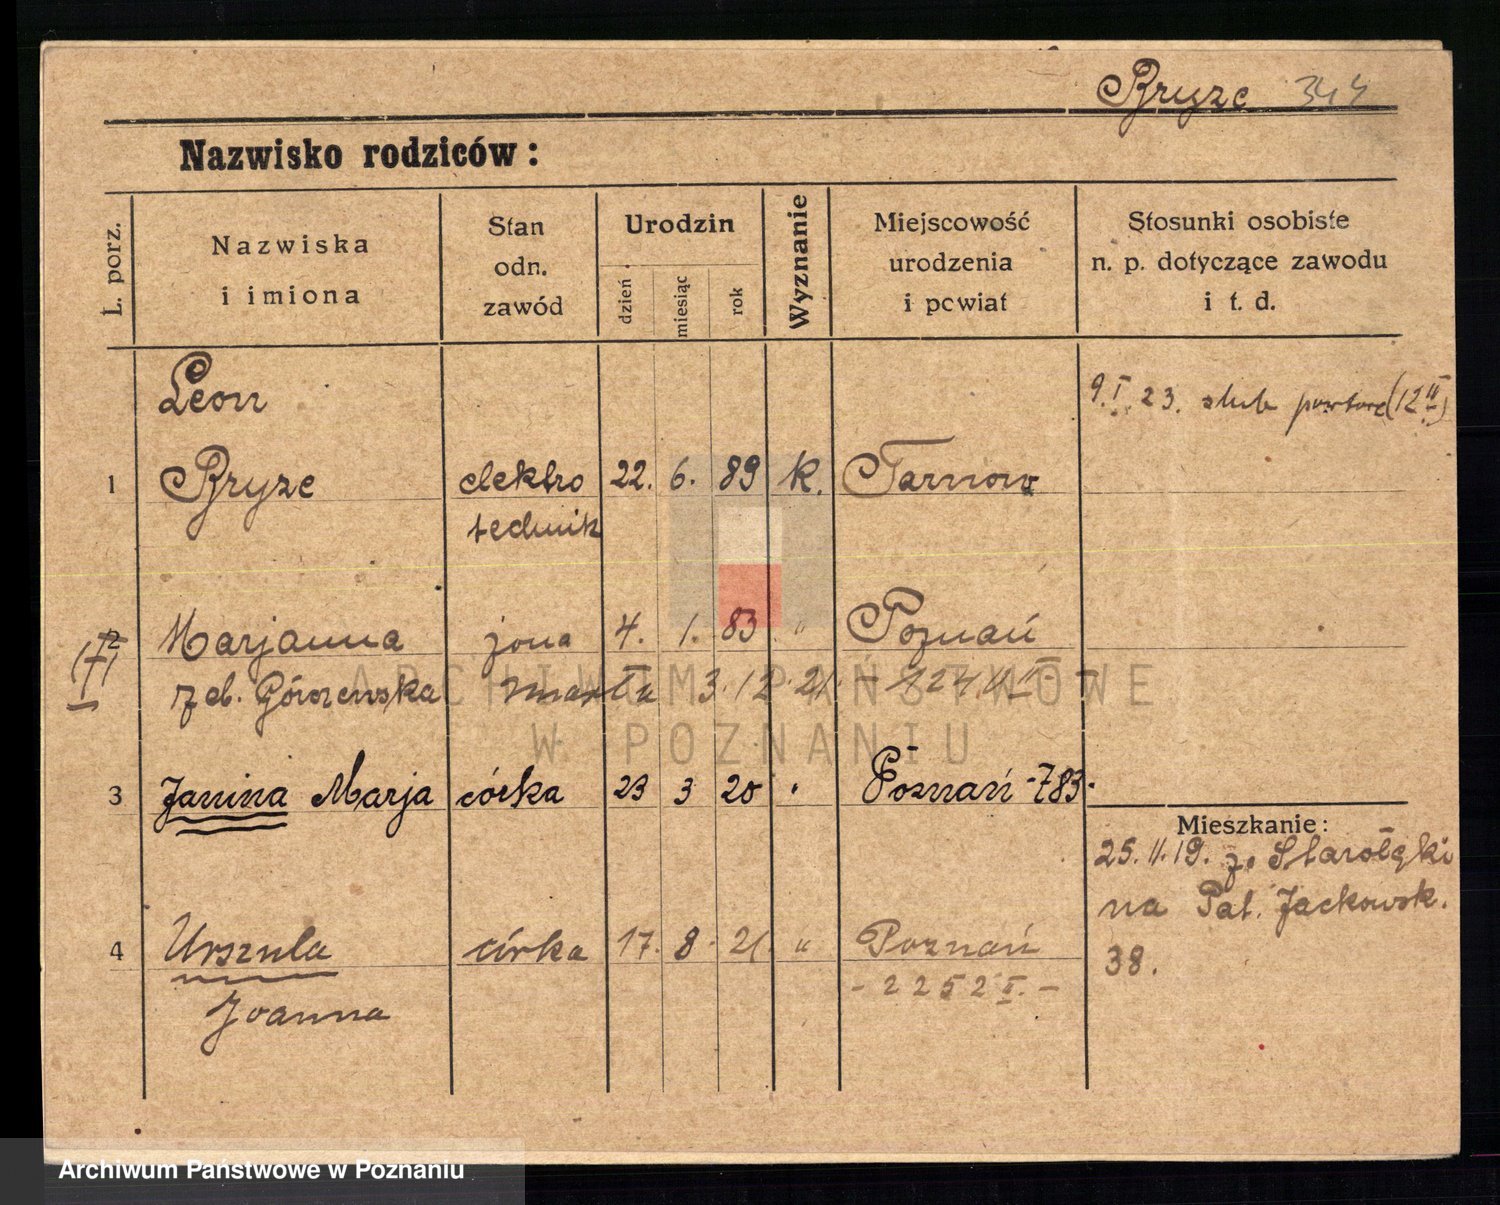 Bryze 344
Nazwisko rodziców:
L. porz.
Nazwiska
i imiona
Stan
odn.
zawód
Urodzin
dzień
miesiąc
rok
Wyznanie
Miejscowość
urodzenia
i powiat
Stosunki osobiste
n. p. dotyczące zawodu
i t. d.
Leon
9.I.23. slub (12 II)
1 Bryze elektro 22. 6. 89 k. Tarnow
technik
2 Marjanna żona 4. 1. 83 " Poznań
(†) I
zeb. zmarła 3.12.21.
3 Janina Marja córka 23 3 20 " Poznań -783-
Mieszkanie:
25.II.19. z. Starołęki
na Pat. Jackowsk.
38.
4 Urszula córka 17. 8. 21. " Poznań
- 2252 II. -
Joanna
ARCHIWUM PAŃSTWOWE
W POZNANIU
Archiwum Państwowe w Poznaniu